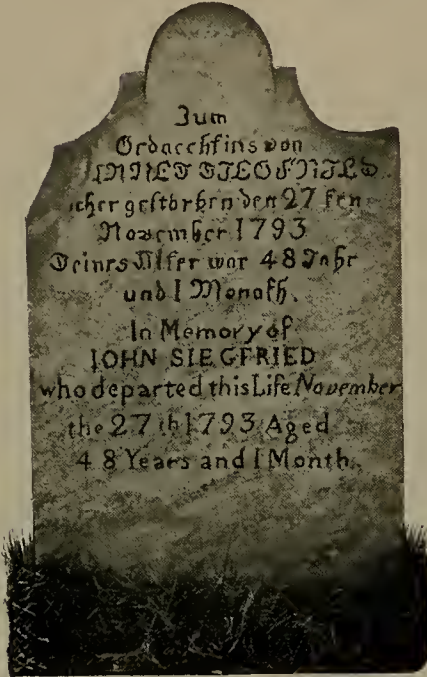 Zum
Gedaechtins von
gestorben den 27 ten
November 1793
Seines Alter war 48 Jahr
und 1 Monath.
In Memory of
JOHN SIEGFRIED
who departed this Life November
the 27th 1793 Aged
48 Years and 1 Month.